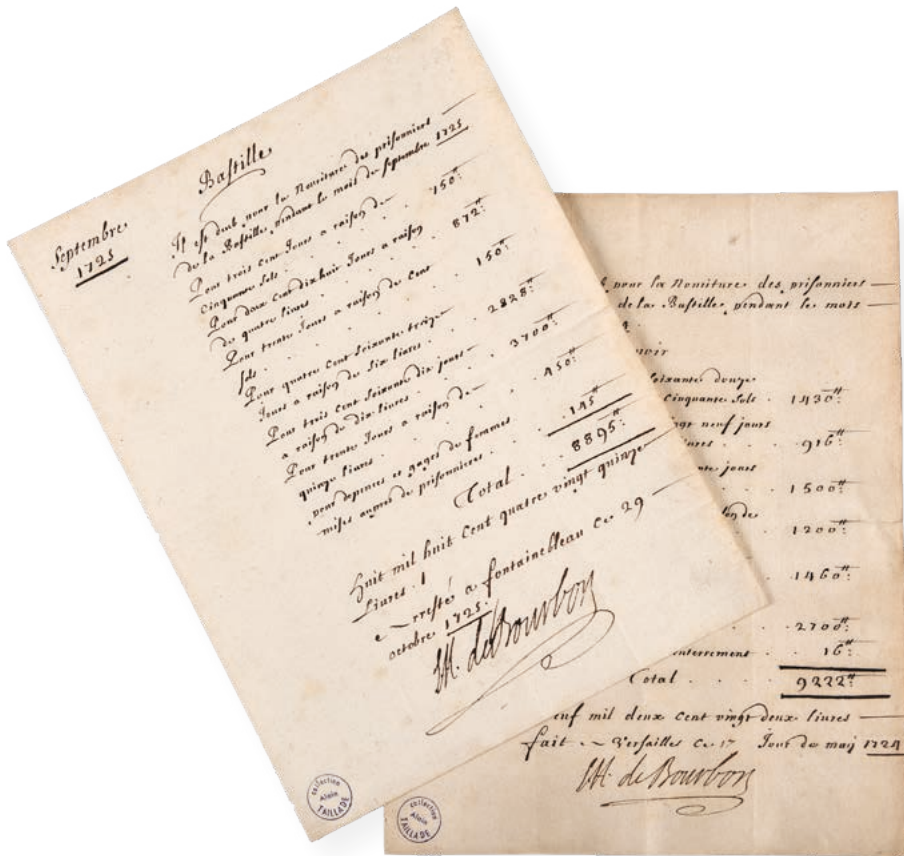 Septembre
1725
Bastille
Il est deub pour la Nouriture des prisonniers
de la Bastille pendant le mois de septembre 1725
Pour trois Cent Jours a raison de
Cinquante sols . . . . . 750ᵗᵗ:
Pour deux Cent dix huit Jours a raison
de quatre livres . . . . . 872ᵗᵗ:
Pour trente Jours a raison de Cent
sols . . . . . 150ᵗᵗ:
Pour quatre Cent soixante treize
Jours a raison de six livres . . . 2838ᵗᵗ:
Pour trois Cent soixante dix jours
a raison de dix livres . . . . 3700ᵗᵗ:
Pour trente Jours a raison de
quinze livres . . . . . 450ᵗᵗ:
pour depences et gages de femmes
mises aupres de prisonnieres . . . 135ᵗᵗ
Total . . . 8895ᵗᵗ:
huit mil huit Cent quatre vingt quinze
Livres. /
Arresté a fontainebleau ce 29
octobre 1725.
M. de Bourbon
collection
Alain
TAILLADE
pour la Nouriture des prisonniers
de la Bastille pendant le mois
soixante douze
Cinquante sols . 1430ᵗᵗ:
neuf jours
. . 916ᵗᵗ:
jours
. . 1500ᵗᵗ:
de
. . 1200ᵗᵗ:
. . 1460ᵗᵗ:
. . 2700ᵗᵗ:
enterrement . 16ᵗᵗ:
Total . . . 9222ᵗᵗ:
mil deux Cent vingt deux livres
fait a Versailles Ce 17 Jour de may 1724
M. de Bourbon
collection
Alain
TAILLADE